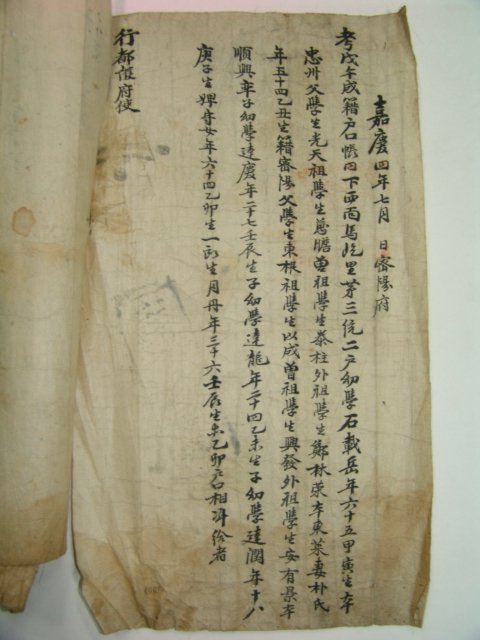 嘉慶四年七月 日密陽府
考戊午成籍戶口帳內下西面馬屹里第三統二戶幼學石載岳年六十五甲寅生本
忠州父學生光天祖學生 曾祖學生泰柱外祖學生鄭林 本東萊妻朴氏
年五十四乙丑生籍密陽父學生東根祖學生以成曾祖學生興發外祖學生安有 本
順興率子幼學達慶年二十七壬辰生子幼學達龍年二十四乙未生子幼學達 年十八
庚子生婢 女年六十四乙卯生一所生月丹年二十六壬辰生 乙卯戶口相準給者
行都護府使